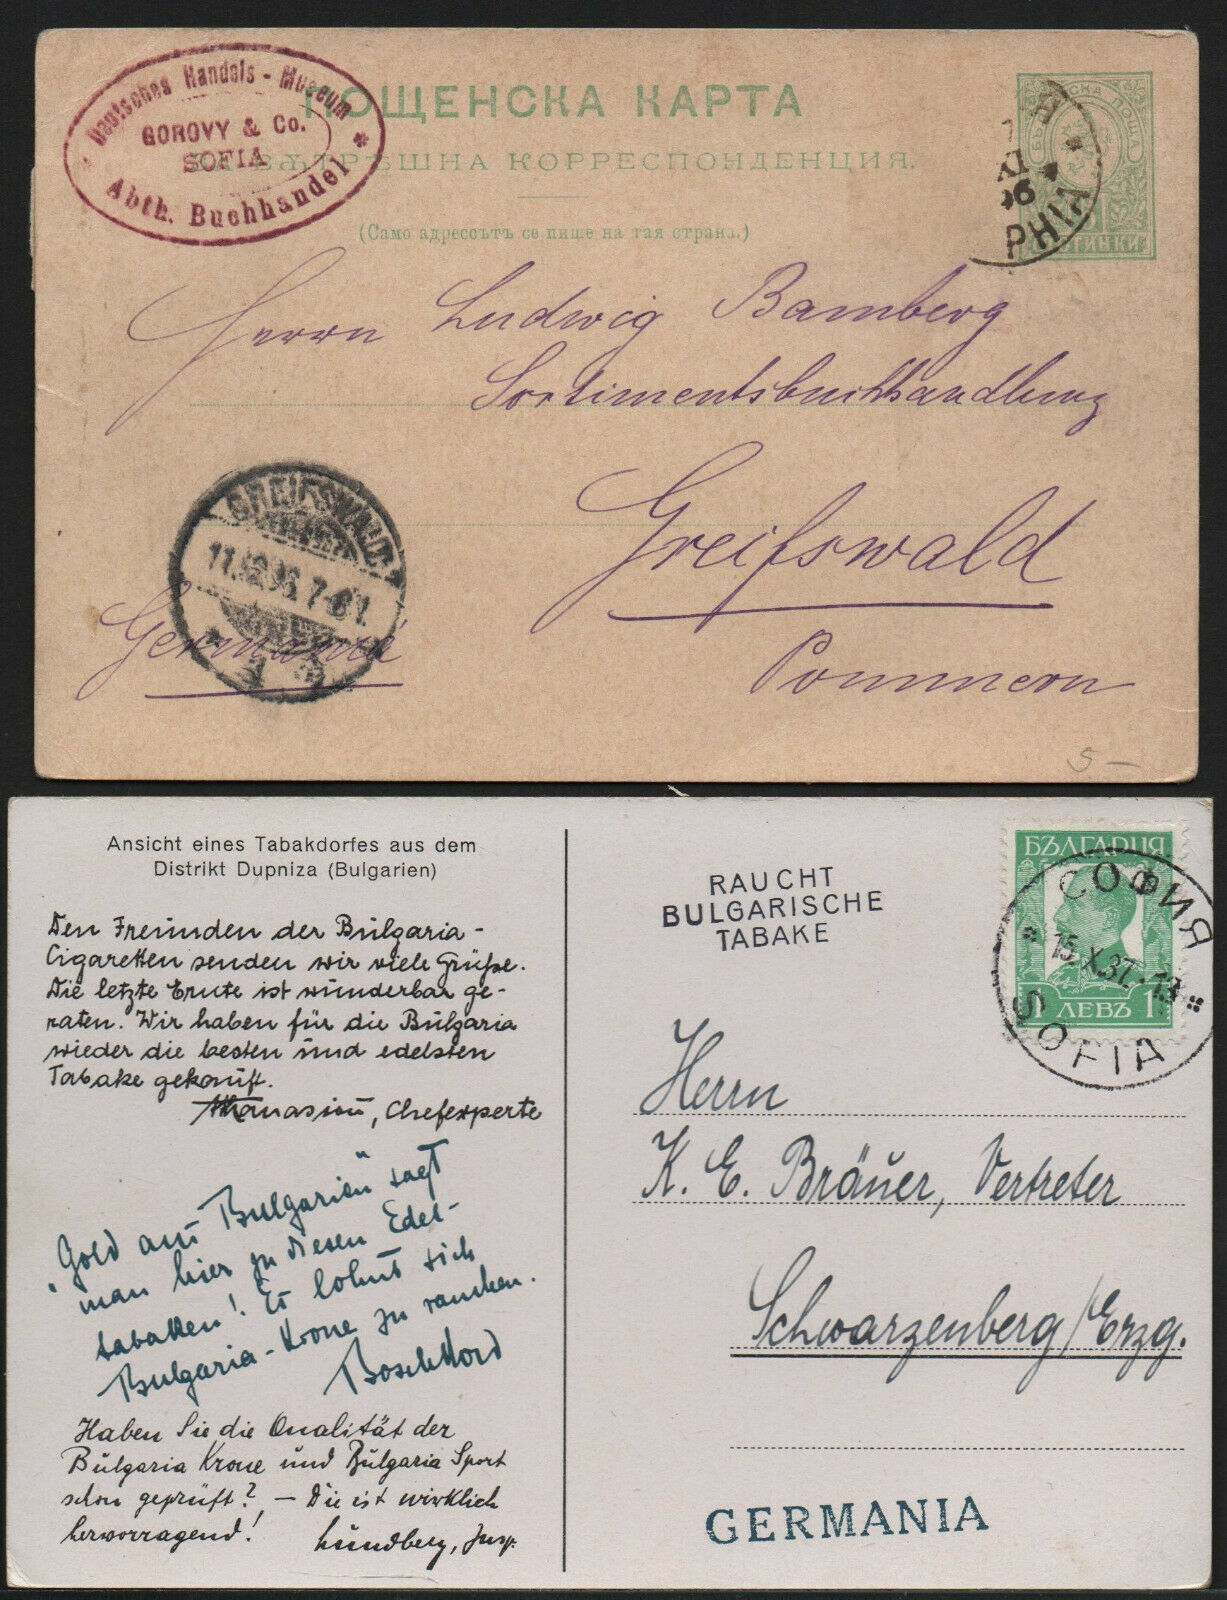 Deutsches Handels - Museum
GOROVY & Co.
SOFIA
Abth. Buchhandel
ПОЩЕНСКА КАРТА
ЗА ВѪТРѢШНА КОРРЕСПОНДЕНЦИЯ.
(Само адрессътъ се пише на тая страна.)
XI
96
PHIA
Herrn Ludwig Bamberg
Sortimentsbuchhandlung
Greifswald
Pommern
Germania
GREIFSWALD
5 -
Ansicht eines Tabakdorfes aus dem
Distrikt Dupniza (Bulgarien)
Den Freunden der Bulgaria-
Cigaretten senden wir viele Grüße.
Die letzte Ernte ist wunderbar ge-
raten. Wir haben für die Bulgaria
wieder die besten und edelsten
Tabake gekauft.
Athanasiou, Chefexperte
"Gold aus Bulgarien" sagt
man hier zu diesen Edel-
tabaken! Es lohnt sich
Bulgaria-Krone zu rauchen.
Haben Sie die Qualität der
Bulgaria Krone und Bulgaria Sport
schon geprüft? — Die ist wirklich
hervorragend!
Lundberg, Insp.
RAUCHT
BULGARISCHE
TABAKE
БЪЛГАРИЯ
1 ЛЕВЪ 1
СОФИЯ
15.X.37.-13
SOFIA
Herrn
K. E. Bräuer, Vertreter
Schwarzenberg/Erzg.
GERMANIA